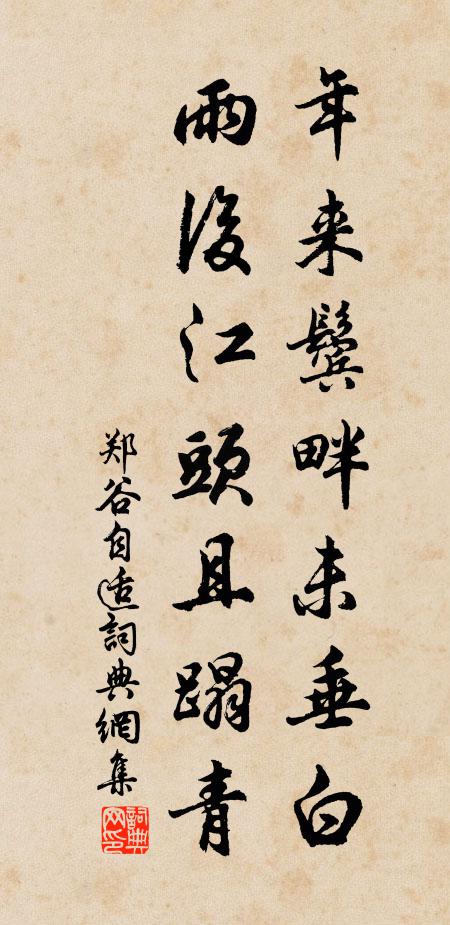 年来鬓畔未垂白
雨後江頭且蹋青
郑谷自适詞典網集
詞典網印